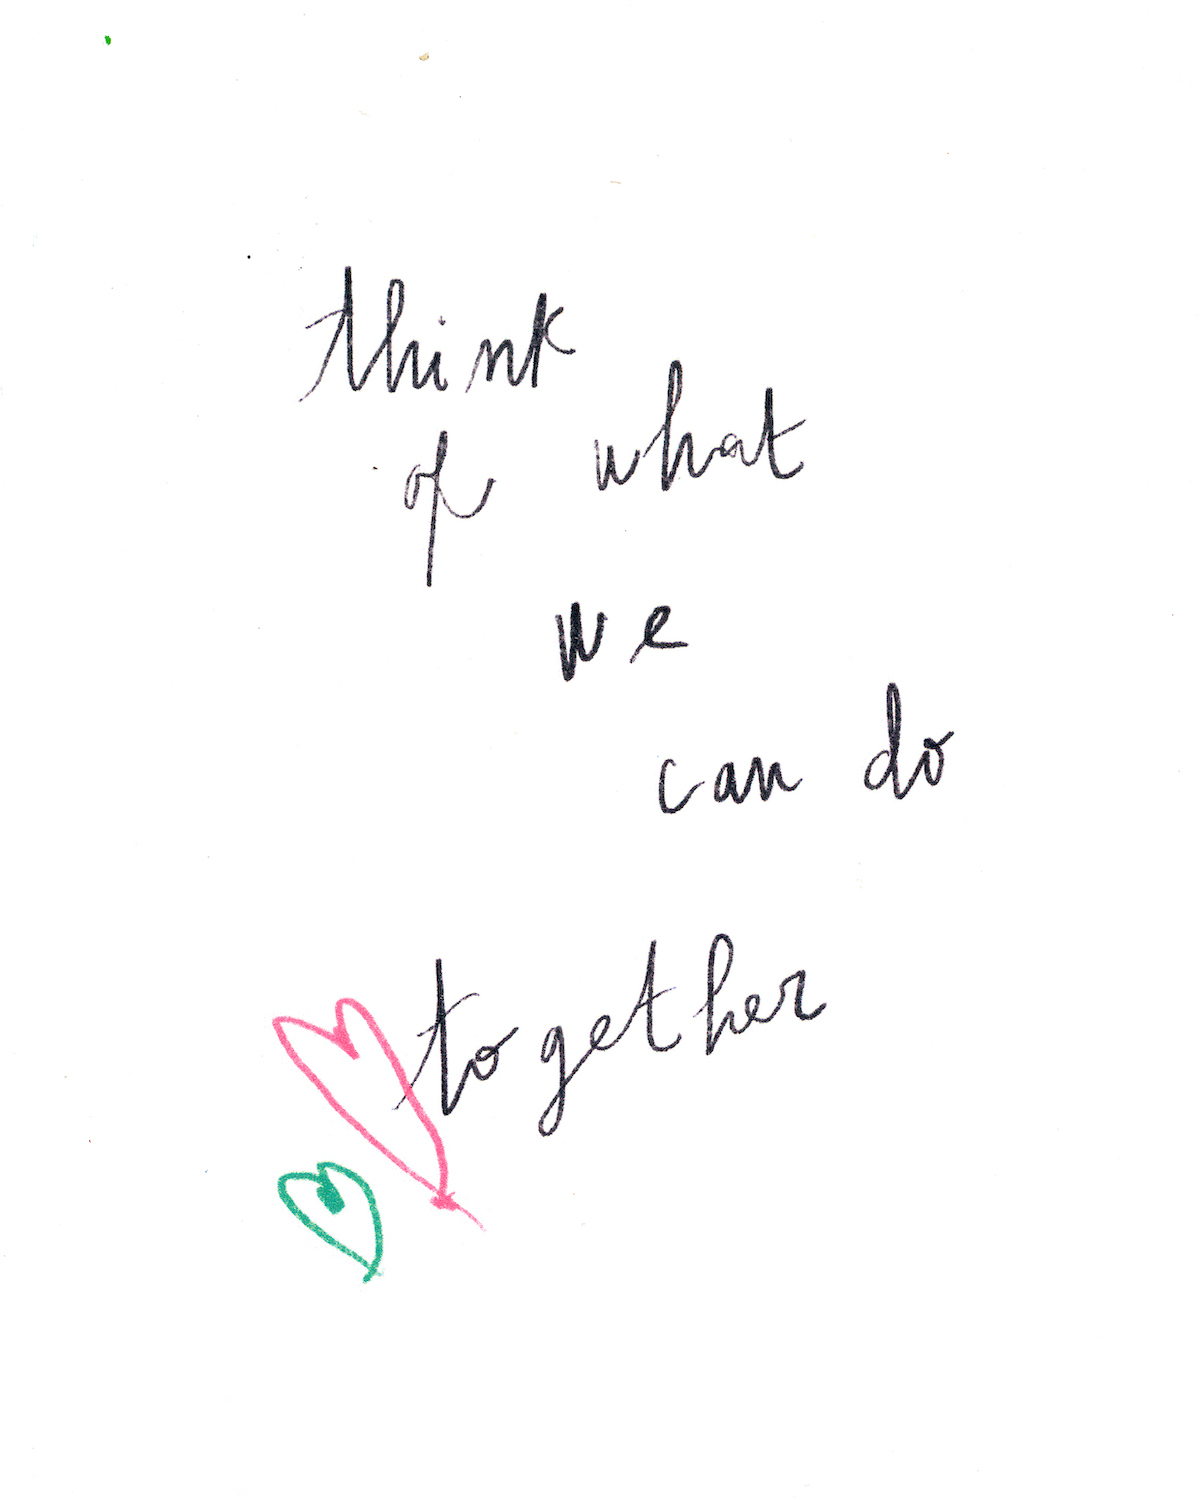 think
of what
we
can do
together